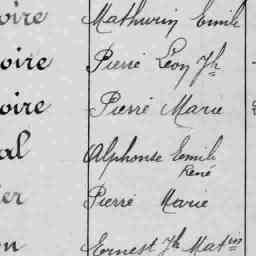 oire Mathurin Emile
oire Pierre Léon Jh
oire Pierre Marie
al Alphonse Emile
René
ier Pierre Marie
on Ernest Jh Mat in